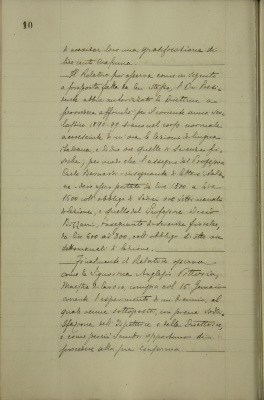 10
di assicurar loro una gratificazione di
lire cento ciascuna.
Il Relatore poi osserva come in seguito
a proposta fatta da lui stesso, l'On. Presi-
denza abbia autorizzato la Direttrice a
provvedere affinchè pel secondo anno sco-
lastico 1898-99 il corso normale
accrescendo di un'ora le lezioni di lingua
italiana, e di due ore quelle di Scienze fi-
siche, per modo che l'assegno del Professore
Carlo insegnante di lettere italia-
ne sia portato da lire 1800 a lire
1500 coll'obbligo di ore settimanali
di lezione, e quello del Professore
insegnante di scienze fisiche,
da lire 600 ad 800, coll'obbligo di otto ore
settimanali di lezione.
Finalmente il Relatore osserva
come la Signorina Vittoria,
Maestra di lavoro, compia col 15 Gennaio
l'esperimento di un biennio, al
quale venne sottoposta, con piena sodd-
isfazione del Direttore e della Direttrice,
e come perciò sembri opportuno di
procedere alla sua conferma